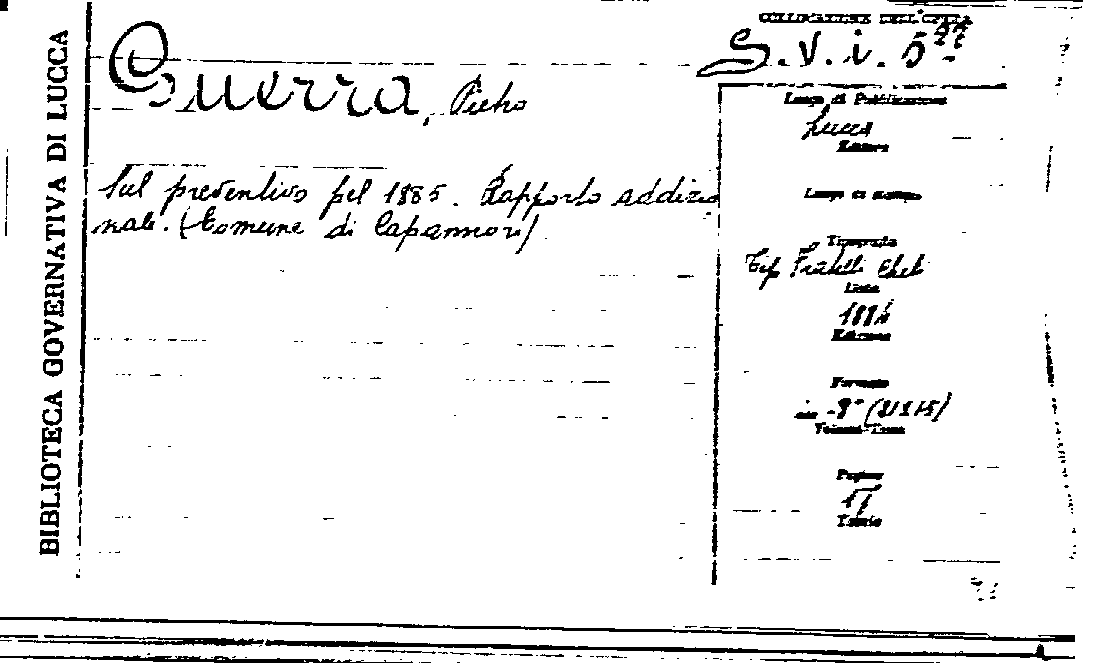 BIBLIOTECA GOVERNATIVA DI LUCCA
COLLOCAZIONE DELL'OPERA
S. V. i. 5
Guerra, Pietro
Sul preventivo pel 1885. Rapporto addizio
nale. (Comune di Capannori)
Luogo di Pubblicazione
Lucca
Editore
Luogo di Stampa
Tipografia
Tip. Fratelli Cheli
Data
1884
Edizione
Formato
in-8° (21x15)
Volumi-Tomi
Pagine
17
Tavole